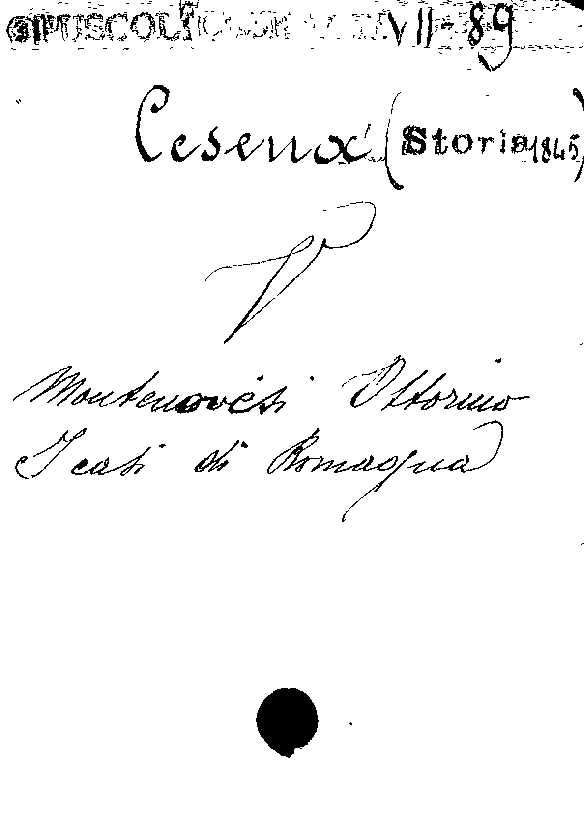 OPUSCOLI VII-89
Cesena (Storia 1845)
V
Montenovesi Ottorino
I casi di Romagna